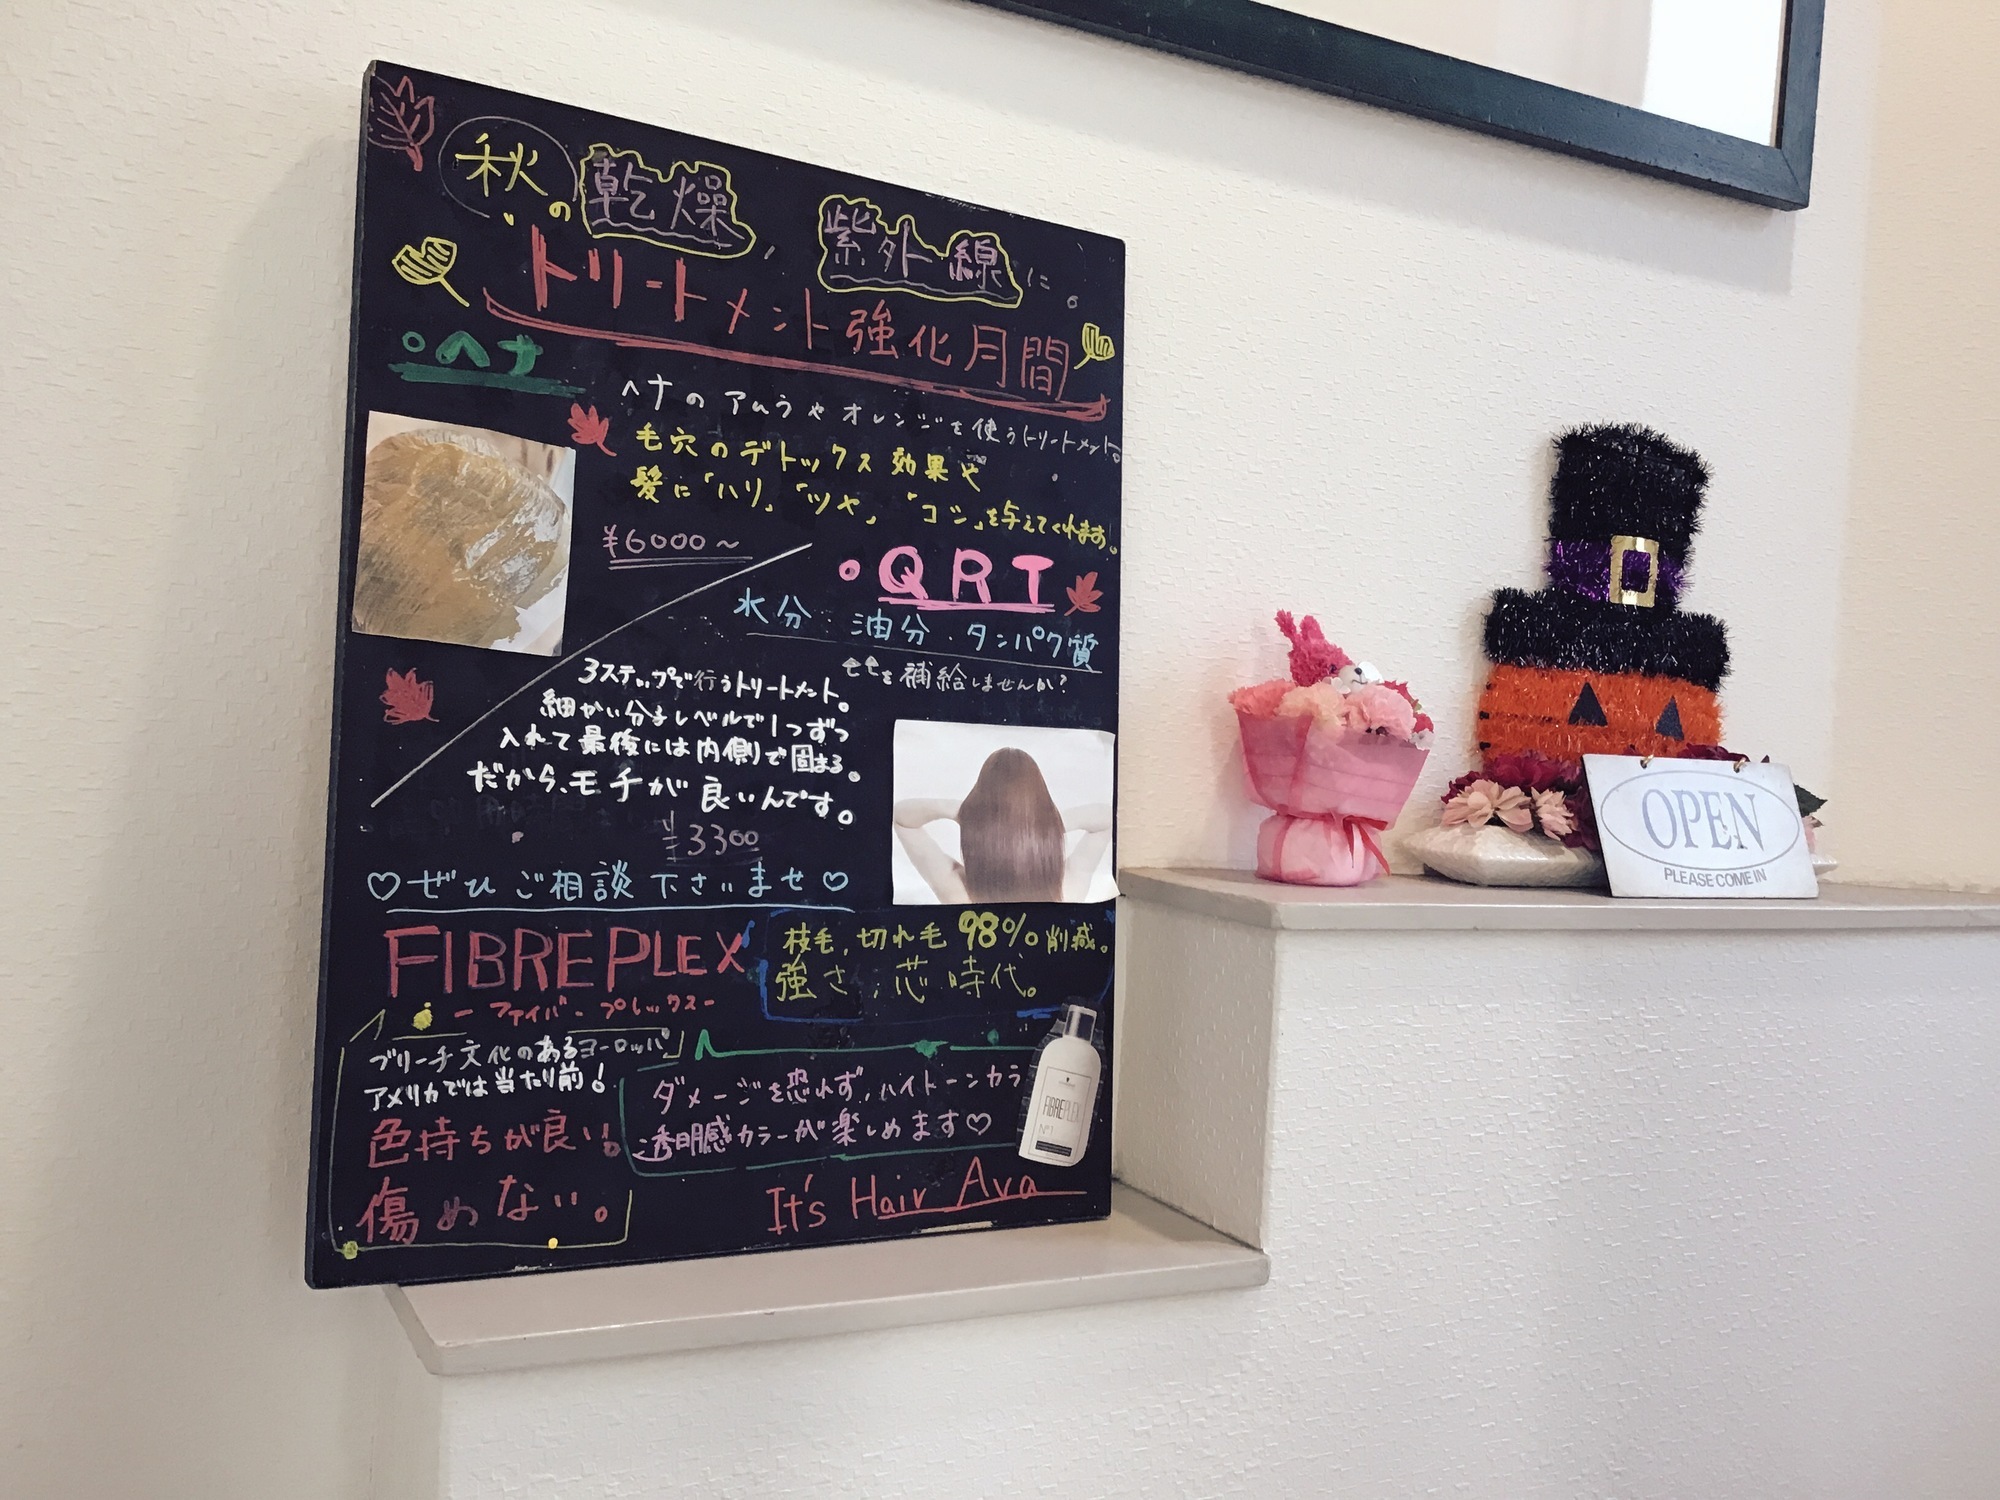 秋の乾燥、紫外線に。
トリートメント強化月間
・ヘナ
ヘナのアムラやオレンジを使うトリートメント。
毛穴のデトックス効果や
髪に「ハリ」「ツヤ」「コシ」を与えてくれます!
¥6000～
・QRT
水分・油分・タンパク質
を補給しませんか?
3ステップで行うトリートメント。
細かい分子レベルで1つずつ
入れて最後には内側で固まる。
だから、モチが良いんです。
¥3300
♡ぜひご相談下さいませ♡
FIBREPLEX
-ファイバープレックス-
枝毛,切れ毛98%削減。
強さ,芯 時代。
ブリーチ文化のあるヨーロッパ
アメリカでは当たり前!
色持ちが良い。
傷めない。
ダメージを恐れず,ハイトーンカラ
透明感カラーが楽しめます♡
FIBREPLEX
Nº1
It's Hair Ava
OPEN
PLEASE COME IN